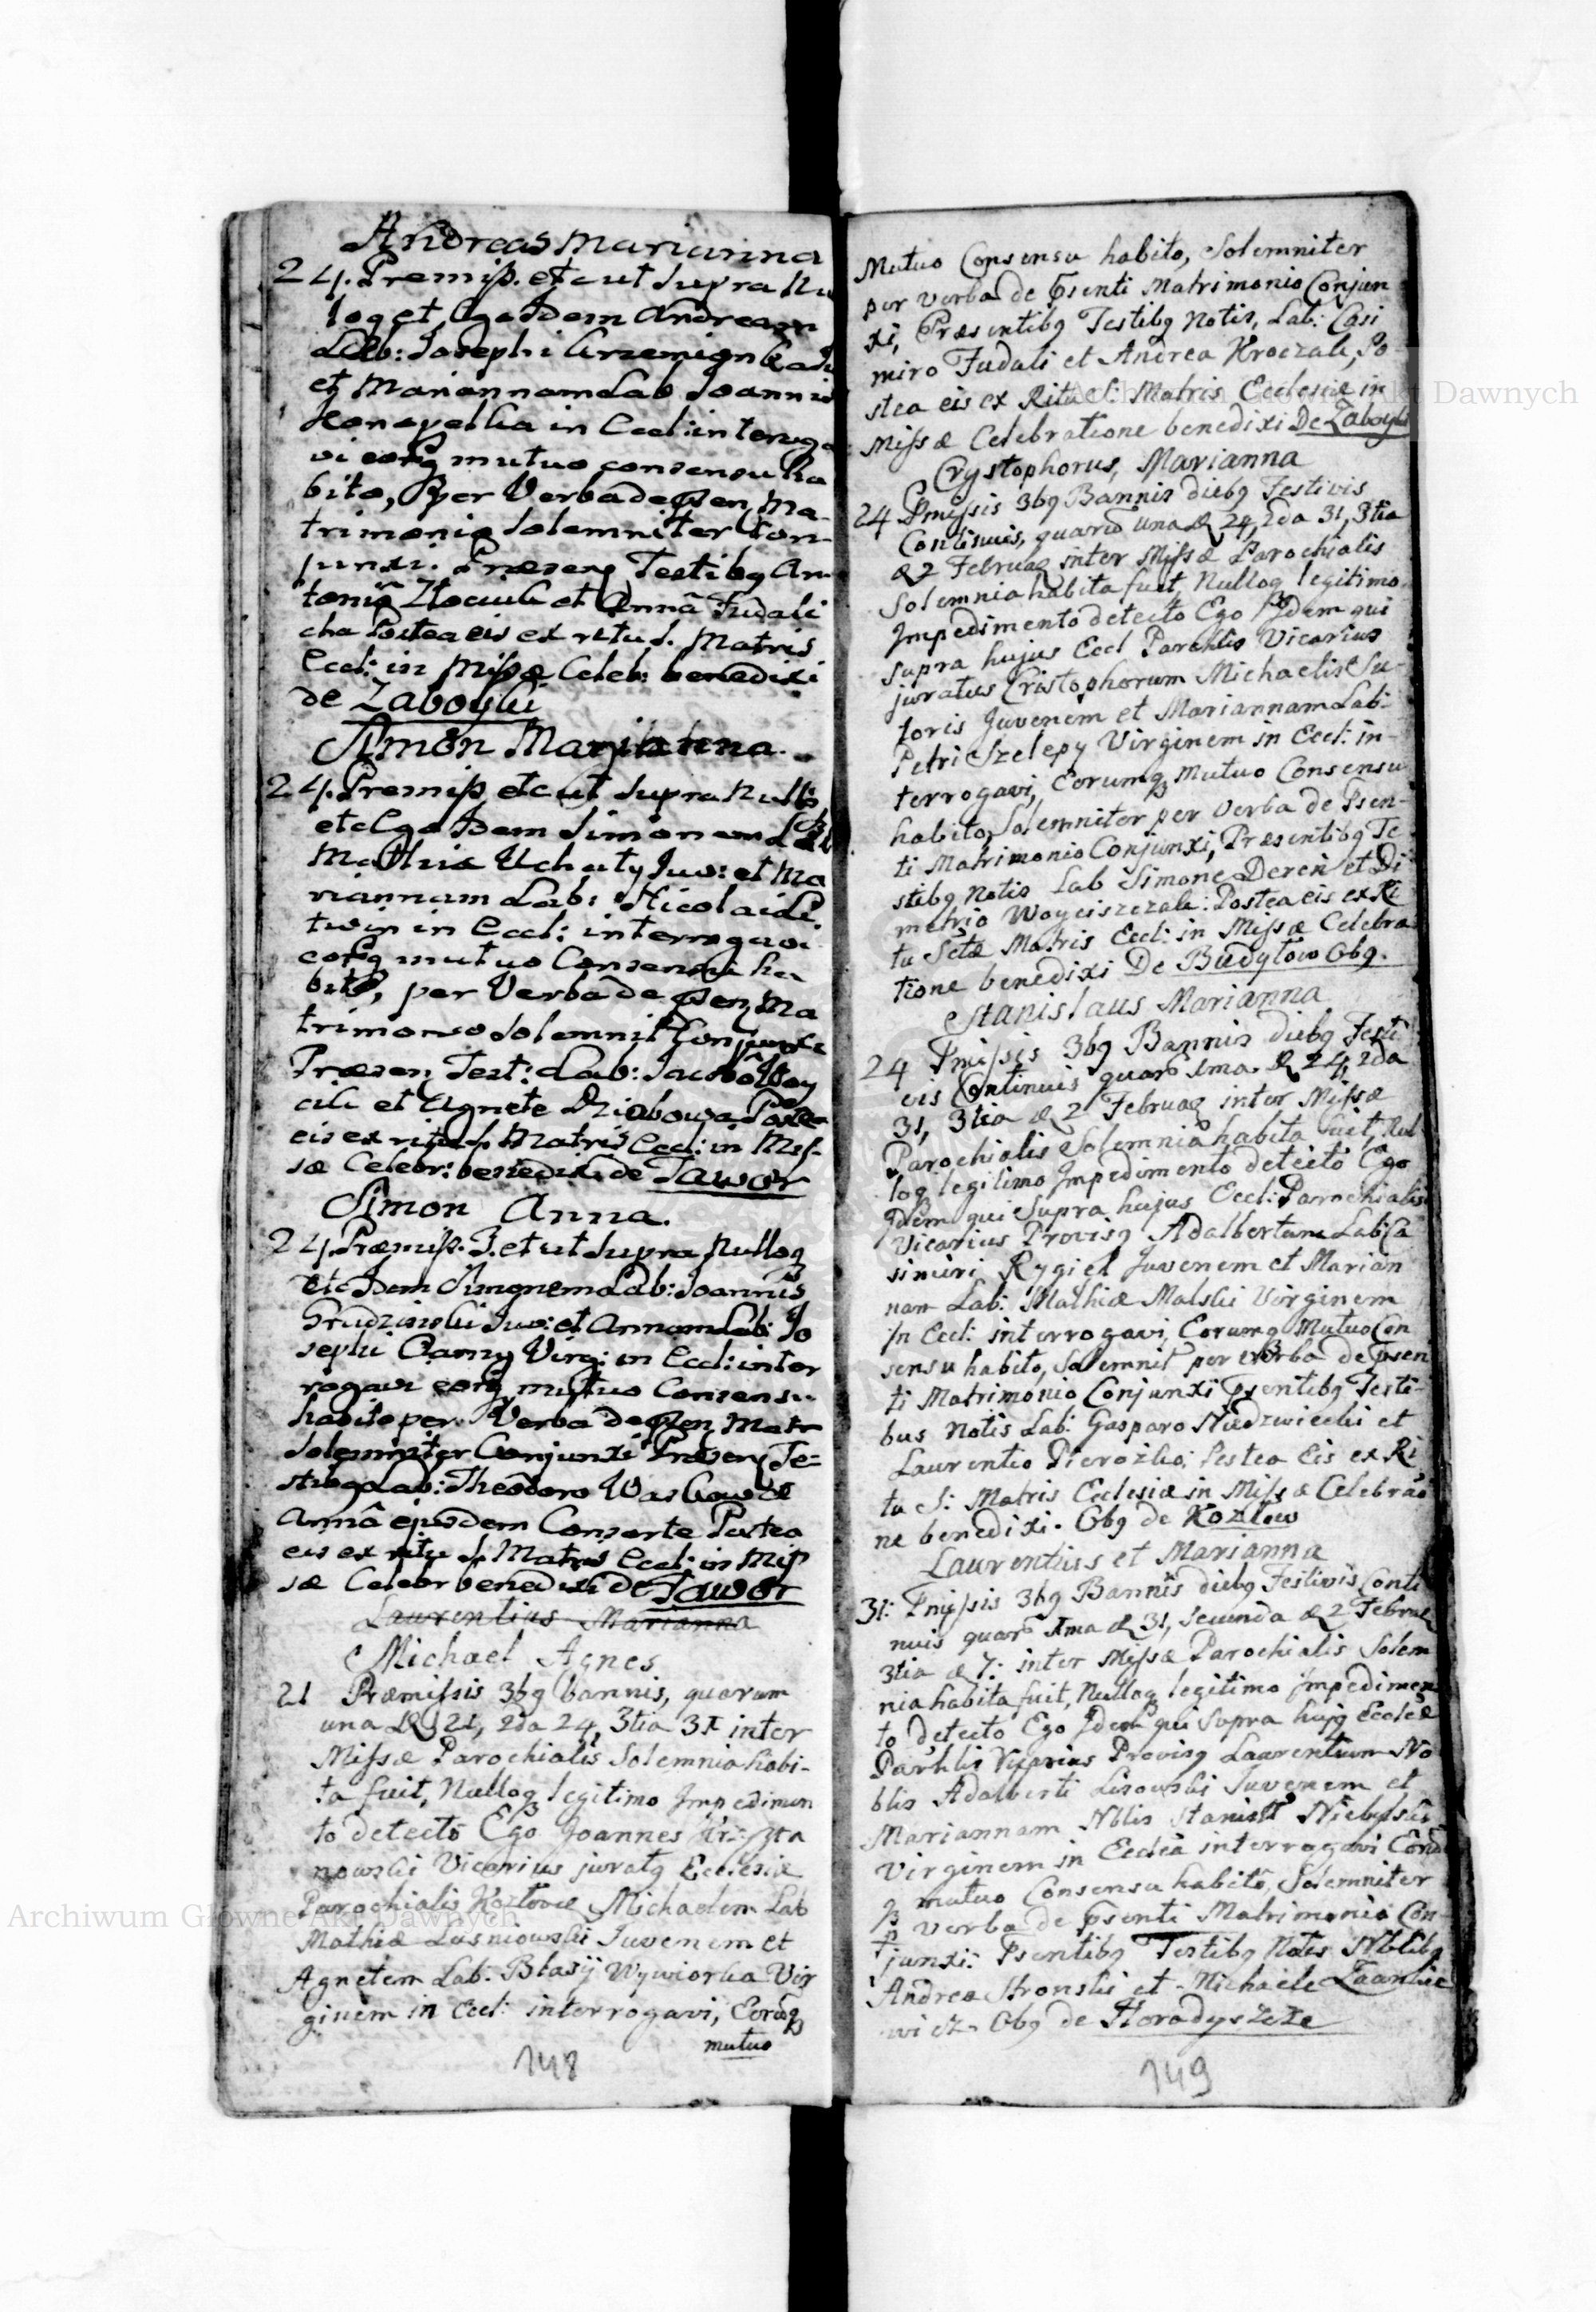 Andreas Marianna
24. Premiss. etc ut supra Nu
loq et, Ego Idem Andream
Lab: Josephi
et Mariannam Lab Joannis
Konopelka in Eccl: interroga
vi eorq mutuo consensu ha
bito, per Verba de psen, Ma-
trimonio Solemniter Con-
junxi. Præsen, Testibq An-
toniõ et Annâ Fudali
cha Postea eis ex ritu S. Matris
Eccl: in Missæ Celeb: benedixi
de Zaboyki
Simon Marianna.
24. Premiss etc ut supra Nullo
etc Ego Idem Simonem Lab
Mathiæ Uchaty Juv: et Ma
riannam Lab: Nicolai Li
twin in Eccl: interrogavi
eorq mutuo Consensu ha
bito, per Verba de psen, Ma
trimonio Solemnit Conjunxi
Præsen, Test: Lab: Jacobô Woy
cik et Agnete Dziobowa Postea
eis ex ritu S. Matris Eccl: in Mis-
sæ Celebr: benedixi de Jawor
Simon Anna.
24. Præmiss. 3. et ut supra Nulloq
etc Idem Simonem Lab: Joannis
Grudzinski Juv: et Annam Lab: Jo
sephi Czarny Virg: in Eccl: inter
rogavi eorq mutuo Consensu
habito per Verba de psen, Matr
Solemniter Conjunxi Præsen, Te-
stibq Lab: Theodoro Waskow &
Annâ ejusdem Consorte Postea
eis ex ritu S. Matris Eccl: in Mis
sæ Celebr benedixi de Jawor
Laurentius Marianna
Michael Agnes
21 Præmissis 3bq bannis, quarum
una D 21, 2da 24, 3tia 31 inter
Missæ Parochialis Solemnia habi-
ta fuit, Nulloq legitimo Impedimen
to detecto Ego Joannes
nowski Vicarius juratq Ecclesiæ
Parochialis Kozłoviæ Michaelem Lab
Mathiæ Lusniowski Juvenem et
Agnetem Lab: Blasij Wywiorka Vir
ginem in Eccl: interrogavi, Eorûq
mutuo
148
Mutuo Consensu habito, Solemniter
per verba de psenti Matrimonio Conjun
xi, Præsentibq Testibq Notis, Lab: Casi
miro Fudali et Andrea Kroczak, Po
stea eis ex Ritu S: Matris Ecclesiæ in
Missæ Celebratione benedixi De Zaboyki
Crystophorus, Marianna
24 Pmissis 3bq Bannis diebq Festivis
Continuis, quarû una D 24, 2da 31, 3tia
D 2 Februaq inter Missæ Parochialis
Solemnia habita fuit, Nulloq legitimo
Impedimento detecto Ego Idem qui
supra hujus Eccl Parchlis Vicarius
juratus Cristophorum Michaelis Su-
toris Juvenem et Mariannam Lab:
Petri Szelepy Virginem in Eccl: in-
terrogavi, Eorumq Mutuo Consensu
habito, Solemniter per verba de Psen-
ti Matrimonio Conjunxi, Præsentibq Te
stibq Notis Lab Simone Dereń et Di
metrio Woyciszczak: Postea eis ex Ri
tu Sctæ Matris Eccl: in Missæ Celebra
tione benedixi De Budyłow Obq.
Stanislaus Marianna
24 Pmissis 3bq Bannis diebq Festi
vis Continuis quarû 1ma D 24, 2da
31, 3tia D 2 Februaq inter Missæ
Parochialis Solemnia habita fuit, Nul
loq legitimo Impedimento detecto Ego
Idem qui Supra hujus Eccl: Parochialis
Vicarius Provisq Adalbertum Lab: Ca
simiri Rygiel Juvenem et Marian
nam Lab: Mathiæ Malski Virginem
In Eccl: interrogavi, Eorumq Mutuo Con
sensu habito, Solemnit per verba de psen
ti Matrimonio Conjunxi Psentibq Testi-
bus Notis Lab: Gasparo Niedzwiecki et
Laurentio Pierożko: Postea Eis ex Ri
tu S: Matris Ecclesiæ in Missæ Celebrão
ne benedixi. Obq de Kozłow
Laurentius et Marianna
31: Pmissis 3bq Bannis diebq Festivis Conti
nuis quarû 1ma D 31, Secunda D 2 Februa
3tia D 7: inter Missæ Parochialis Solem
nia habita fuit, Nulloq legitimo Impedimen
to detecto Ego Idem qui Supra hujq Eccleæ
Parhlis Vicarius Provisq Laurentium No
blis Adalberti Lisowski Juvenem et
Mariannam Nblis Stanisl
Virginem in Ecclêa interrogavi Eorû
q mutuo Consensu habito, Solemniter
p verba de psenti Matrimonio Con-
junxi: Psentibq Testibq Notis Nblibq
Andrea Hronski et Michaele
wicz Obq de Horodyszcze
149
Archiwum Główne Akt Dawnych
Archiwum Główne Akt Dawnych